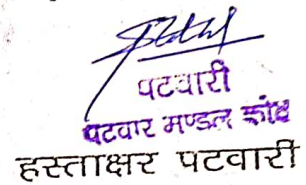 पटवारी
पटवार मण्डल कोंध
हस्ताक्षर पटवारी